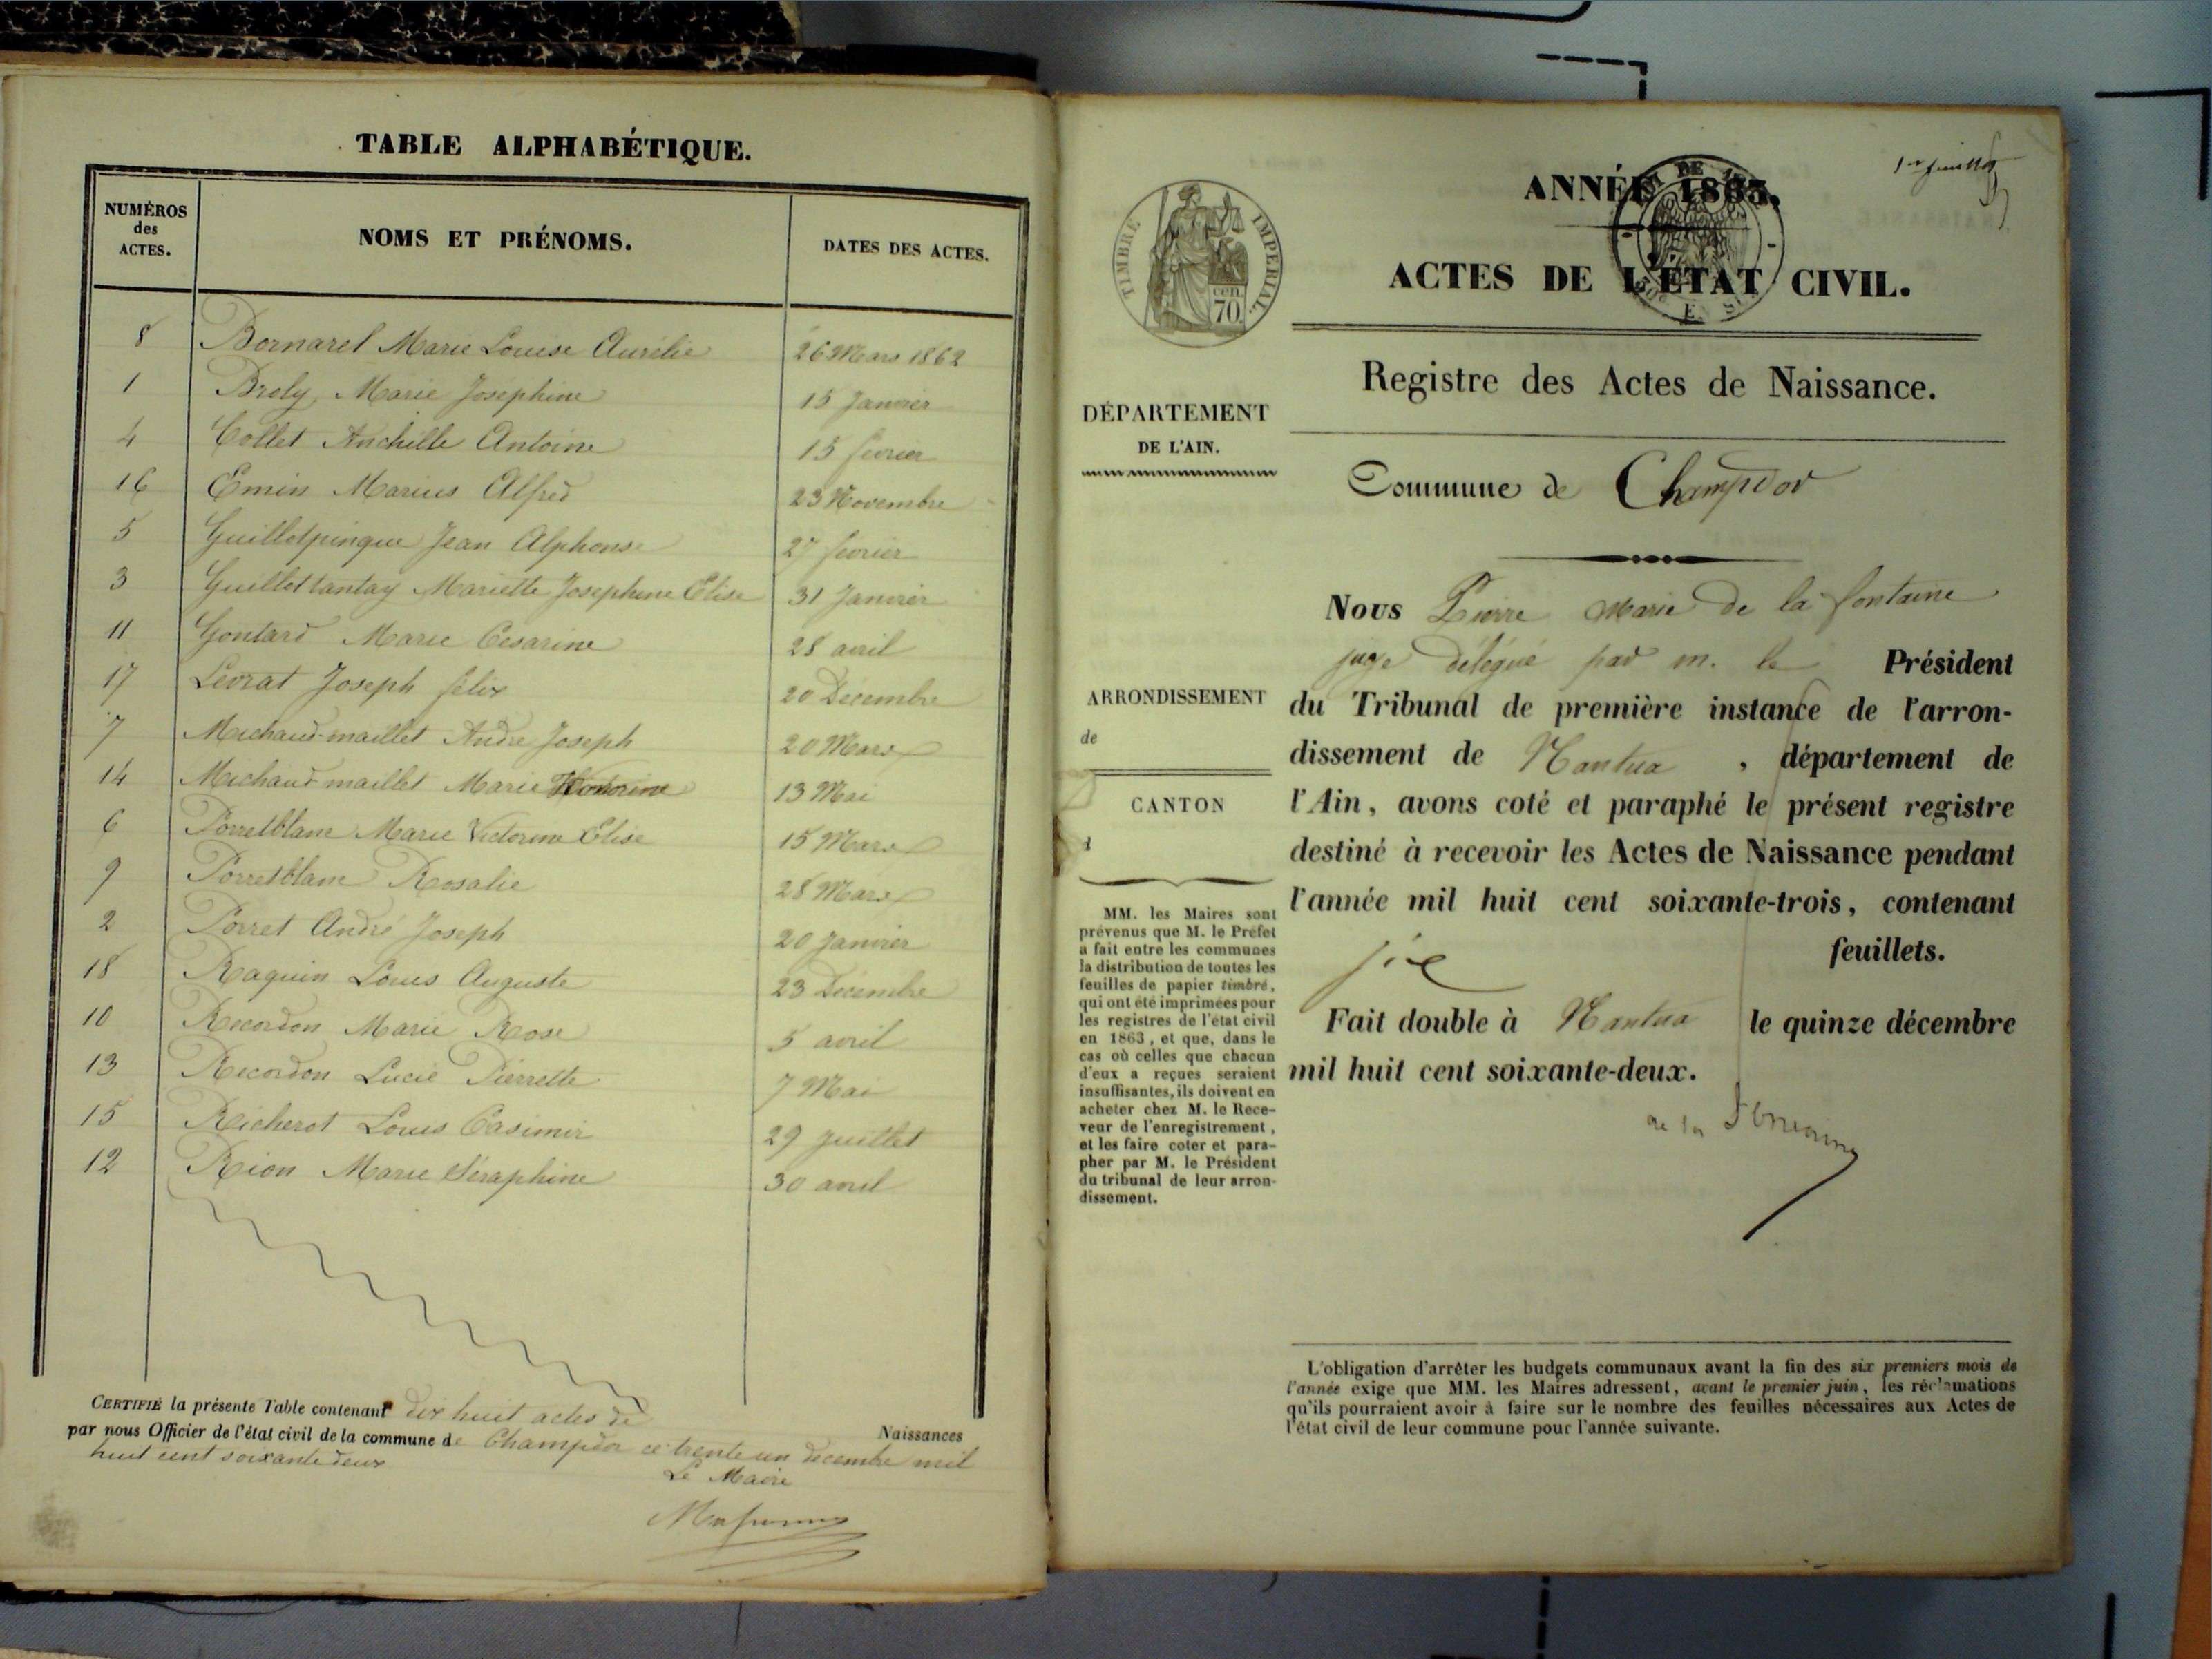 TABLE ALPHABÉTIQUE.
NUMÉROS des ACTES. NOMS ET PRÉNOMS. DATES DES ACTES.
8 Bornarel Marie Louise Aurélie 26 Mars 1862
1 Broly Marie Joséphine 15 Janvier
4 Collet Anchille Antoine 15 fevrier
16 Emin Marius Alfred 23 Novembre
5 Guillotpingue Jean Alphonse 27 fevrier
3 Guillottantay Mariette Josephine Elise 31 Janvier
11 Gontard Marie Cesarine 28 avril
17 Levrat Joseph félix 20 Décembre
7 Michaud-maillet André Joseph 20 Mars
14 Michaud-maillet Marie Honorine 13 Mai
6 Porretblanc Marie Victorine Elise 15 Mars
9 Porretblanc Rosalie 28 Mars
2 Porret André Joseph 20 Janvier
18 Raquin Louis Auguste 23 Décembre
10 Recordon Marie Rose 5 avril
13 Recordon Lucie Pierrette 7 Mai
15 Richerot Louis Casimir 29 Juillet
12 Rion Marie Séraphine 30 avril
CERTIFIÉ la présente Table contenant dix huit actes de Naissances
par nous Officier de l'état civil de la commune de Champdor ce trente un decembre mil
huit cent soixante deux
Le Maire
1er feuillet
ANNÉE 1863.
ACTES DE L'ÉTAT CIVIL.
TIMBRE IMPÉRIAL
cen 70
Registre des Actes de Naissance.
DÉPARTEMENT
DE L'AIN.
Commune de Champdor
ARRONDISSEMENT
de
CANTON
d
MM. les Maires sont
prévenus que M. le Préfet
a fait entre les communes
la distribution de toutes les
feuilles de papier timbré,
qui ont été imprimées pour
les registres de l'état civil
en 1863, et que, dans le
cas où celles que chacun
d'eux a reçues seraient
insuffisantes, ils doivent en
acheter chez M. le Rece-
veur de l'enregistrement,
et les faire coter et para-
pher par M. le Président
du tribunal de leur arron-
dissement.
Nous Pierre Marie De la fontaine
juge délégué par m. le Président
du Tribunal de première instance de l'arron-
dissement de Nantua, département de
l'Ain, avons coté et paraphé le présent registre
destiné à recevoir les Actes de Naissance pendant
l'année mil huit cent soixante-trois, contenant
six feuillets.
Fait double à Nantua le quinze décembre
mil huit cent soixante-deux.
de la Fontaine
L'obligation d'arrêter les budgets communaux avant la fin des six premiers mois de
l'année exige que MM. les Maires adressent, avant le premier juin, les réclamations
qu'ils pourraient avoir à faire sur le nombre des feuilles nécessaires aux Actes de
l'état civil de leur commune pour l'année suivante.